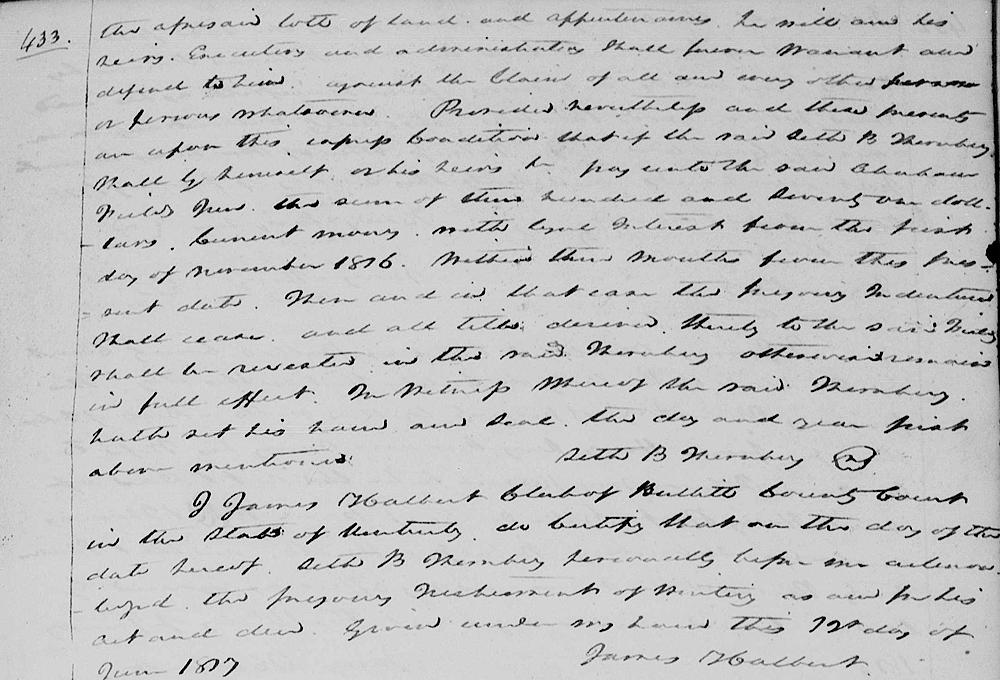 433.
the afresaid lotts of land and appurtenances, he will and his
heirs. Executors and administrators shall forever Warrant and
defend to him against the Claim of all and every other person
or persons whatsoever. Provided nevertheless and these presents
are upon this express Condition that if the said Seth B Thornbery
shall by himself, or his heirs &c pay unto the said Abraham
Fields Junr. the sum of three hundred and seventy one doll-
-lars. Current money, with legal Interest from the first
day of November 1816. Within three months from this pres-
-sent date. Then and in that case the foregoing Indenture
shall cease, and all title derived thereby to the said Fields
shall be revested in the said Thornbery otherwise remain
in full effect. In Witness Whereof the said Thornbery.
hath set his hand and seal the day and year first
above mentioned
Seth B Thornbery
I James Halbert Clerk of Bullitt County Court
in the State of Kentucky do Certify that on the day of the
date hereof, Seth B Thornbery personally before me acknow-
-legd. the foregoing Instrument of Writing as and for his
act and deed. Given under my hand this 12th day of
June 1817
James Halbert